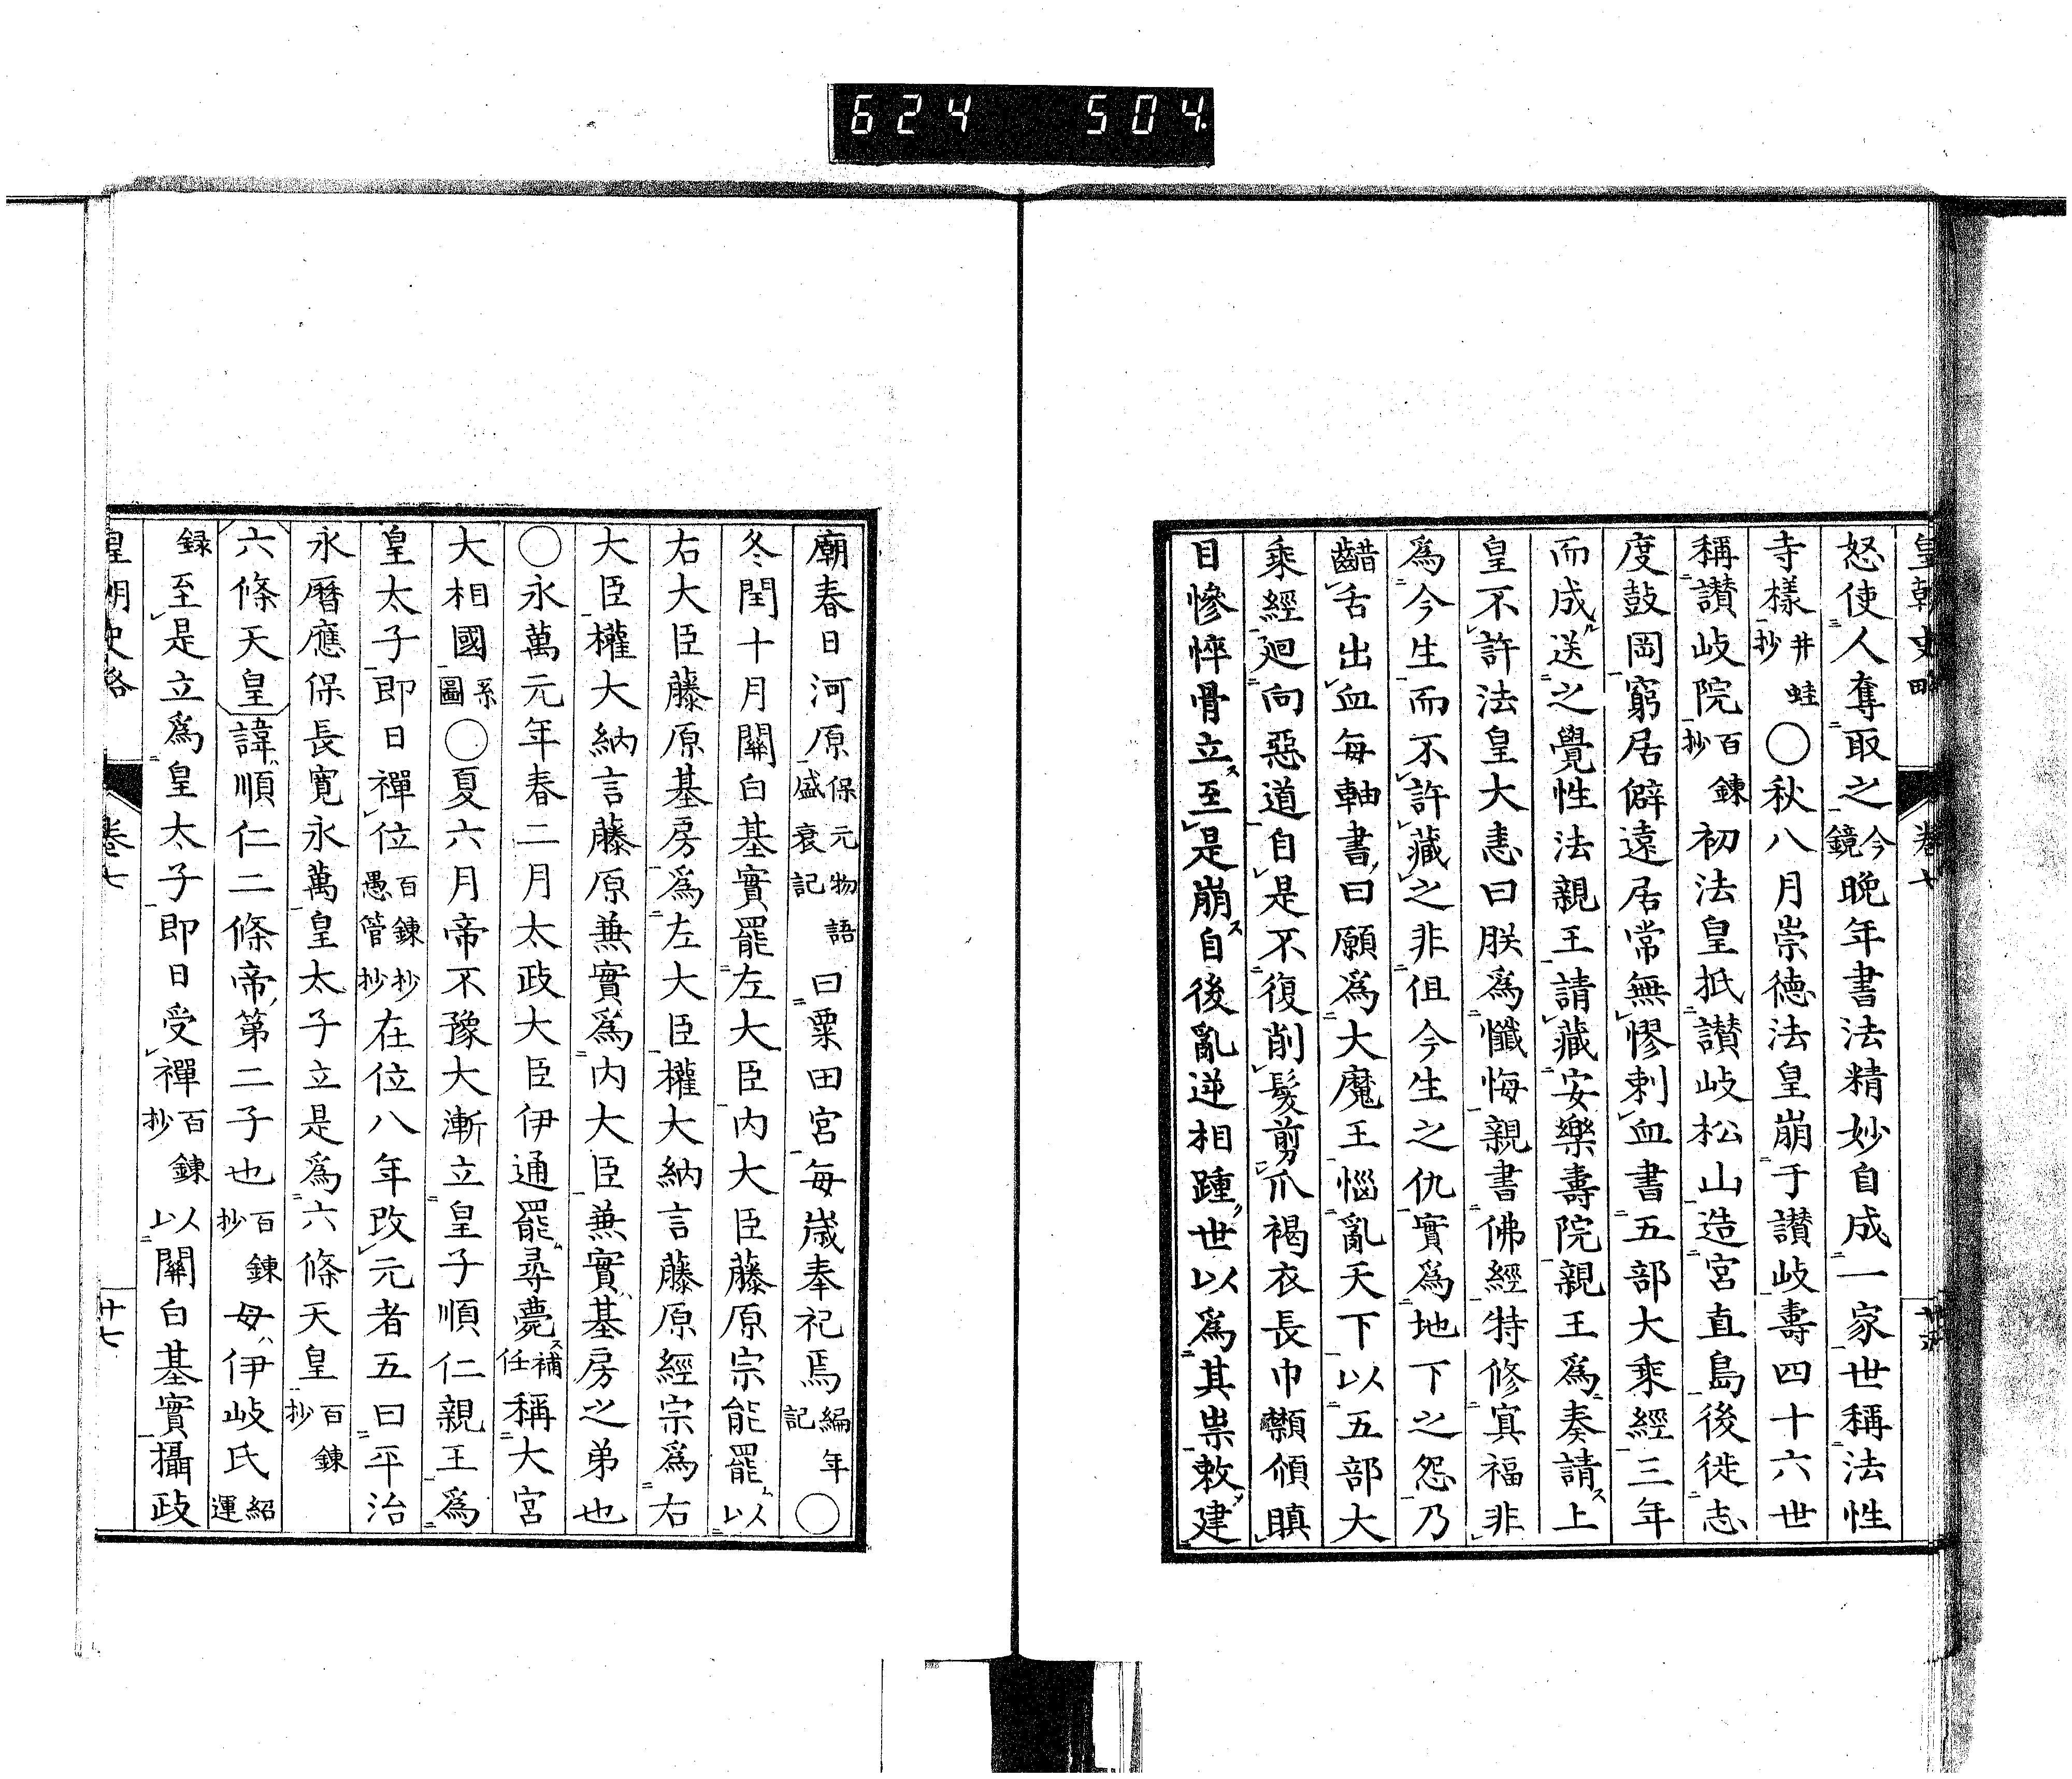 624 504.
怒使人奪取之今鏡晩年書法精妙自成一家世稱法性
寺樣井蛙抄○秋八月崇德法皇崩于讃岐壽四十六世
稱讃岐院百鍊抄初法皇抵讃岐松山造宮直島後徙志
度鼓岡窮居僻遠居常無憀刺血書五部大乘經三年
而成送之覺性法親王請藏安樂壽院親王爲奏請上
皇不許法皇大恚曰朕爲懺悔親書佛經特修冥福非
爲今生而不許藏之非但今生之仇實爲地下之怨乃
齰舌出血每軸書曰願爲大魔王惱亂天下以五部大
乘經廻向惡道自是不復削髮剪爪褐衣長巾顰傾瞋
目慘悴骨立至是崩自後亂逆相踵世以爲其祟敕建
廟春日河原保元物語盛衰記曰粟田宮每歲奉祀焉編年記○
冬閏十月關白基實罷左大臣內大臣藤原宗能罷以
右大臣藤原基房爲左大臣權大納言藤原經宗爲右
大臣權大納言藤原兼實爲內大臣兼實基房之弟也
○永萬元年春二月太政大臣伊通罷尋薨補任稱大宮
大相國系圖○夏六月帝不豫大漸立皇子順仁親王爲
皇太子即日禪位百鍊抄愚管抄在位八年改元者五曰平治
永曆應保長寬永萬皇太子立是爲六條天皇百鍊抄
六條天皇諱順仁二條帝第二子也百鍊抄母伊岐氏紹運
錄至是立爲皇太子即日受禪百鍊抄以關白基實攝政
皇朝史略 卷七 十七